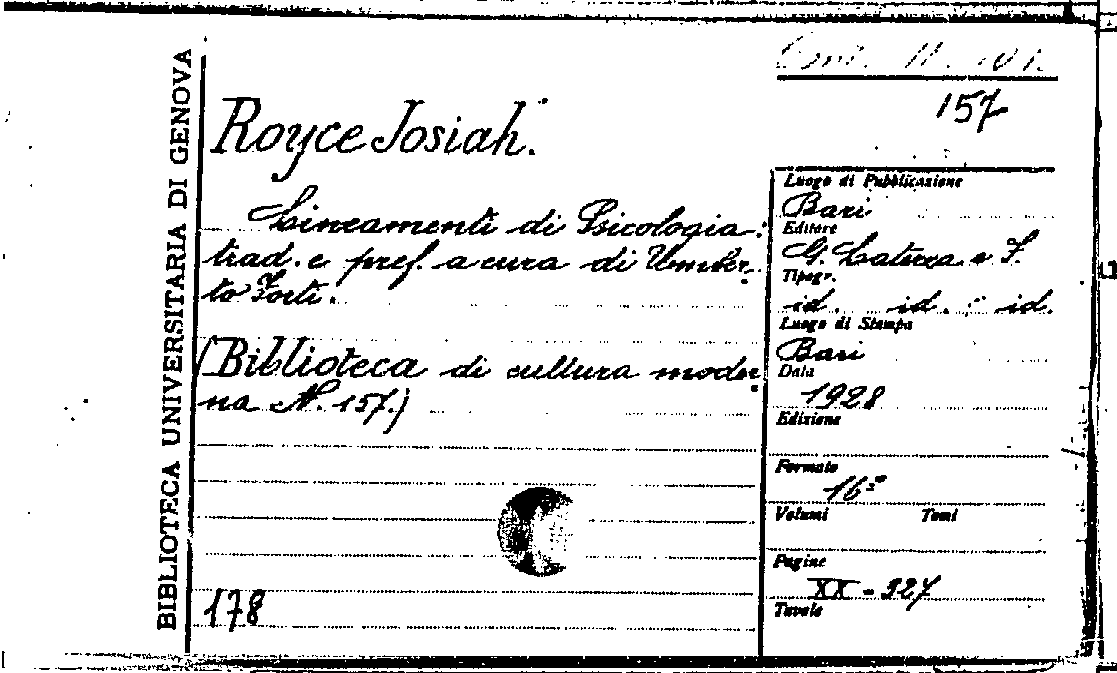 BIBLIOTECA UNIVERSITARIA DI GENOVA
157
Royce Josiah.
Lineamenti di Psicologia:
trad. e pref. a cura di Umber-
to Forti.
(Biblioteca di cultura moder-
na N. 157.)
178
Luogo di Pubblicazione
Bari
Editore
G. Laterza e F.
Tipogr.
id. id. id.
Luogo di Stampa
Bari
Data
1928
Edizione
Formato
16º
Volumi Tomi
Pagine
XX - 327
Tavole